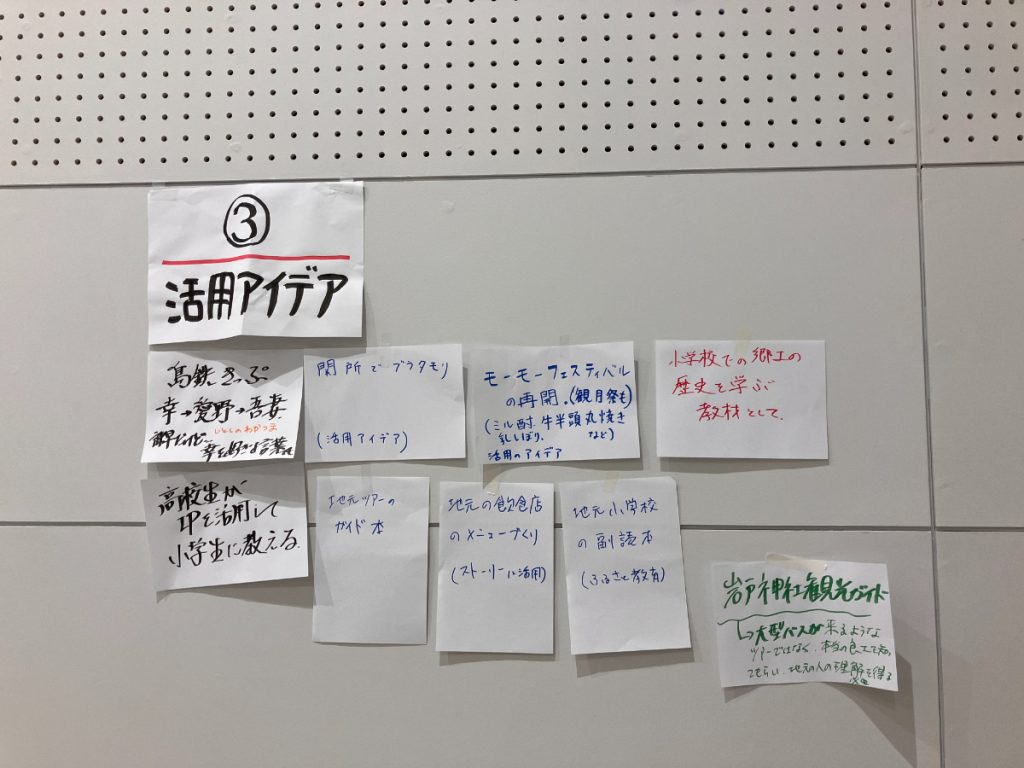 ③
活用アイデア
島鉄きっぷ
幸→愛野→吾妻
いとしのわがつま
幸を好きな言葉に
関所でブラタモリ
(活用アイデア)
モーモーフェスティバル
の再開。(観月祭も)
(ミルク酎 牛半頭丸焼き
乳しぼり、など)
活用のアイデア
小学校での郷土の
歴史を学ぶ
教材として。
高校生が
IPを活用して
小学生に教える。
地元ツアーの
ガイド本
地元の飲食店
のメニューづくり
(ストーリーに活用)
地元小学校
の副読本
(ふるさと教育)
岩戸神社観光ガイド
↳大型バスが来るような
ツアーではなく、本当の良さを知っ
てもらい、地元の人の理解を得る